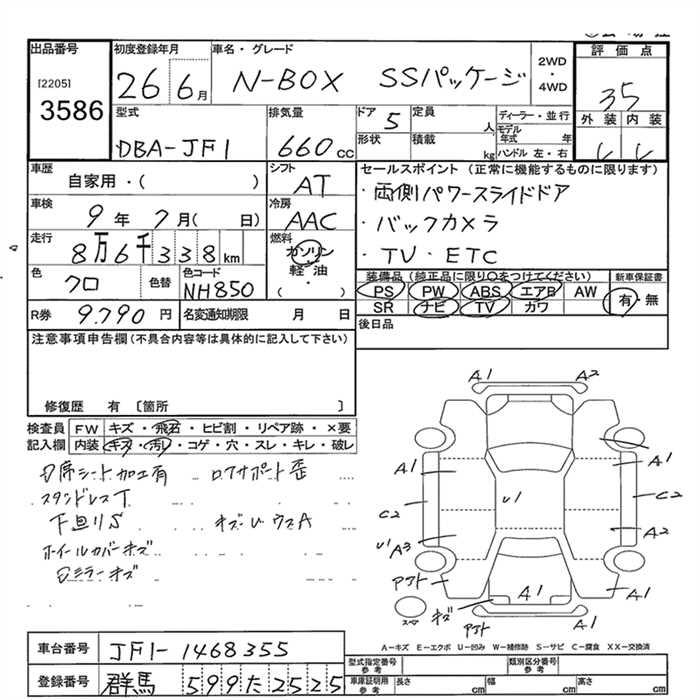 出品番号
[2205]
3586
初度登録年月
26 6月
車名・グレード
N-BOX SSパッケージ
2WD
・
4WD
評価点
35
外装 内装
型式
DBA-JF1
排気量
660cc
ドア 5
形状
定員 人
積載 kg
ディーラー・並行
モデル年式 年
ハンドル 左・右
車歴
自家用・( )
シフト
AT
セールスポイント (正常に機能するものに限ります)
・両側パワースライドドア
・バックカメラ
・TV・ETC
車検
9年7月( 日)
冷房
AAC
走行
8万6千338km
燃料
ガソリン
軽・油
・
( )
色
クロ
色替
色コード
NH850
装備品 (純正品に限り○をつけてください)
PS PW ABS エアB AW
SR ナビ TV カワ
新車保証書
有・無
R券 9.790円
名変通知期限 月 日
後日品
注意事項申告欄(不具合内容等は具体的に記入して下さい)
修復歴 有 〔箇所 〕
検査員 FW キズ・飛石・ヒビ割・リペア跡・×要
記入欄 内装 キズ・汚レ・コゲ・穴・スレ・キレ・破レ
シート加工有 ロアサポート歪
スタンドレスT
下回りS キズUウスA
ホイールカバーキズ
ミラーキズ
A1 A2
A1 A1
C2 U1 C2
U1 A3 A2
アクト A1 A1
スペア
キズ
アクト
A-キズ E-エクボ U-凹み W-補修跡 S-サビ C-腐食 XX-交換済
車台番号 JF1-1468355
登録番号 群馬 599た2525
型式指定番号 参考
類別区分番号 参考
車庫証明用 参考
長さ cm 幅 cm 高さ cm